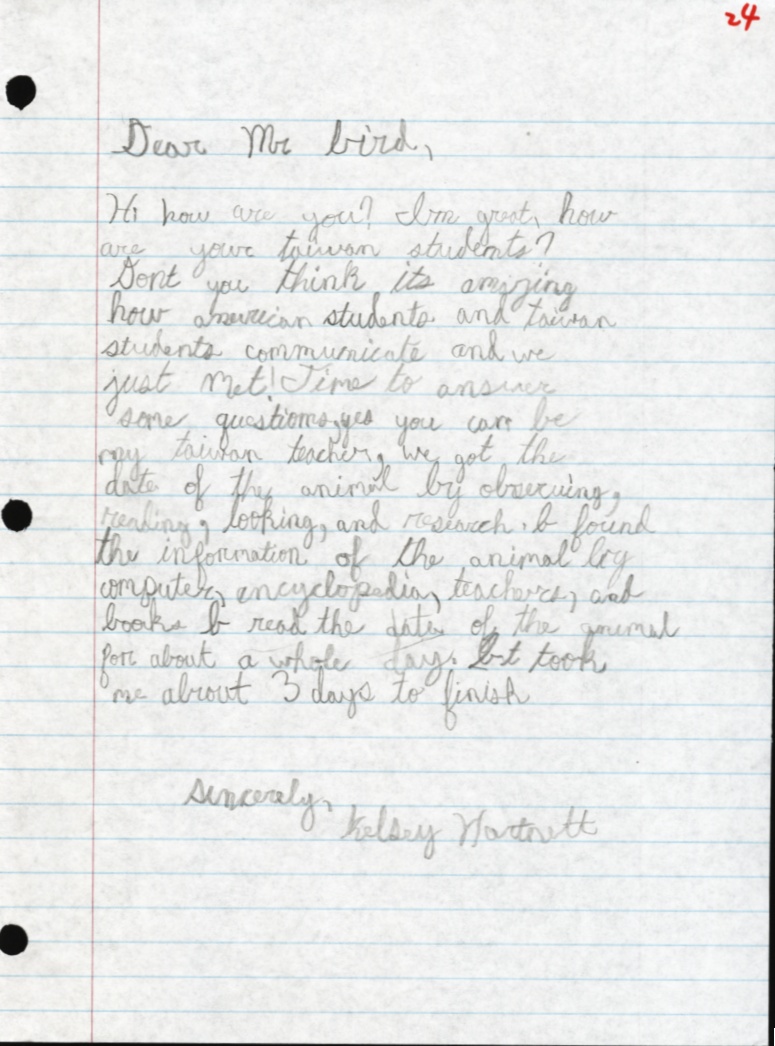 24
Dear Mr bird,
Hi how are you? I'm great, how
are your taiwan students?
Dont you think its amazing
how american students and taiwan
students communicate and we
just met! Time to answer
some questions, yes you can be
my taiwan teacher, we got the
date of the animal by observing,
reading, looking, and research. I found
the information of the animal by
computer, encyclopedia, teachers, and
books I read the date of the animal
for about a whole day. It took
me about 3 days to finish
Sincerely,
Kelsey Hartnett